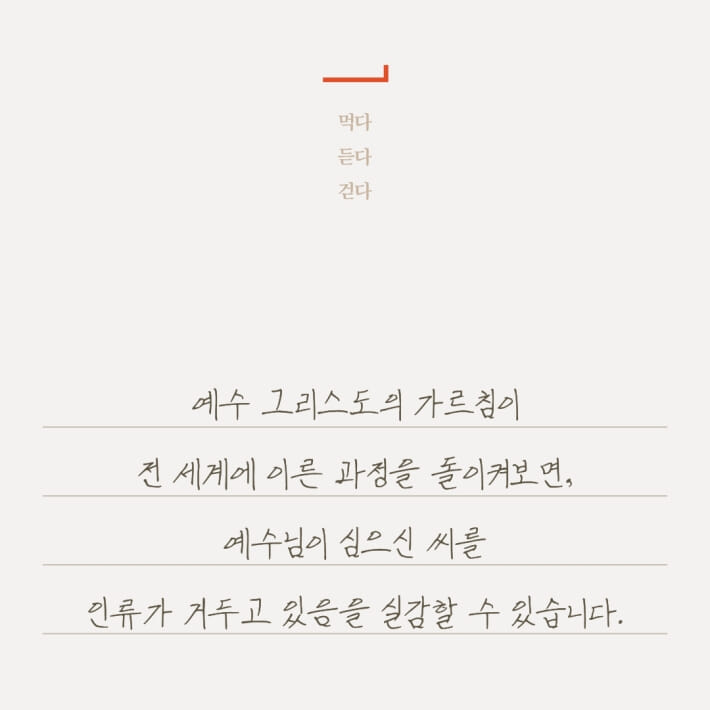 먹다
듣다
걷다
예수 그리스도의 가르침이
전 세계에 이른 과정을 돌이켜보면,
예수님이 심으신 씨를
인류가 거두고 있음을 실감할 수 있습니다.